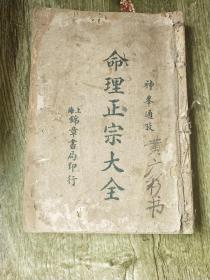 神峯通攷
命理正宗大全
上海錦章書局印行